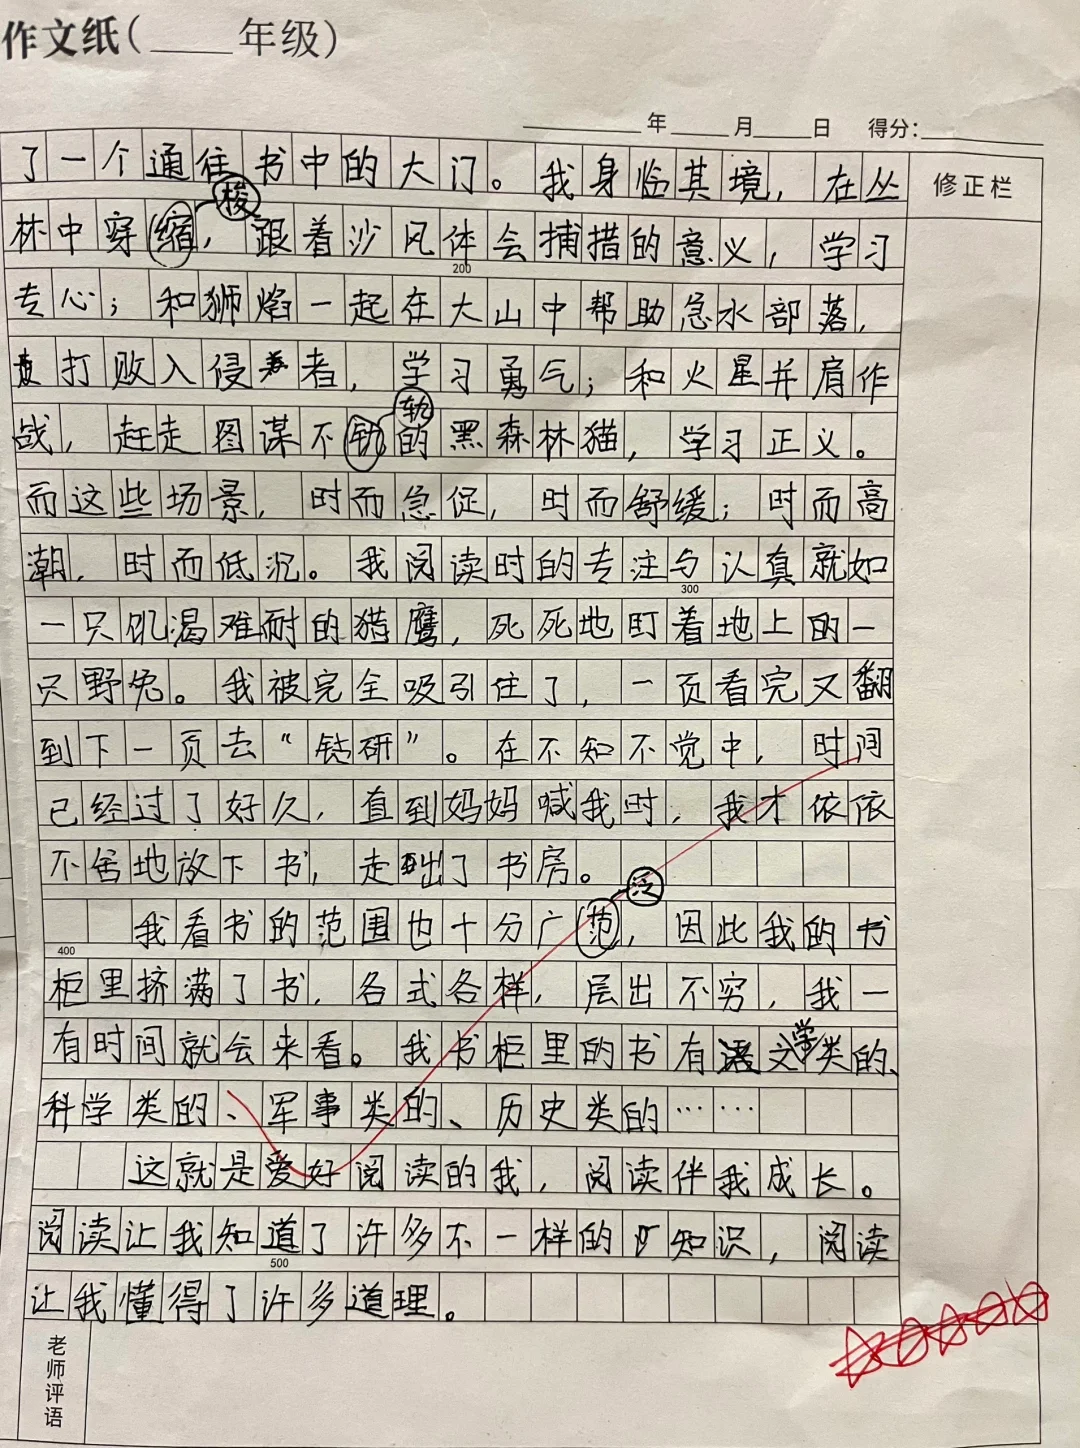 作文纸(____年级)
____年____月____日 得分:____
修正栏
了一个通往书中的大门。我身临其境，在丛
梭
林中穿缩，跟着沙风体会捕措的意义，学习
200
专心；和狮焰一起在大山中帮助急水部落，
打败入侵者，学习勇气；和火星并肩作
轨
战，赶走图谋不轨的黑森林猫，学习正义。
而这些场景，时而急促，时而舒缓；时而高
潮，时而低沉。我阅读时的专注与认真就如
300
一只饥渴难耐的猎鹰，死死地盯着地上的一
只野兔。我被完全吸引住了，一页看完又翻
到下一页去“钻研”。在不知不觉中，时间
已经过了好久，直到妈妈喊我时，我才依依
不舍地放下书，走出了书房。
泛
我看书的范围也十分广范，因此我的书
400
柜里挤满了书，各式各样，层出不穷，我一
有时间就会来看。我书柜里的书有文学类的、
科学类的、军事类的、历史类的……
这就是爱好阅读的我，阅读伴我成长。
阅读让我知道了许多不一样的知识，阅读
500
让我懂得了许多道理。
老师评语